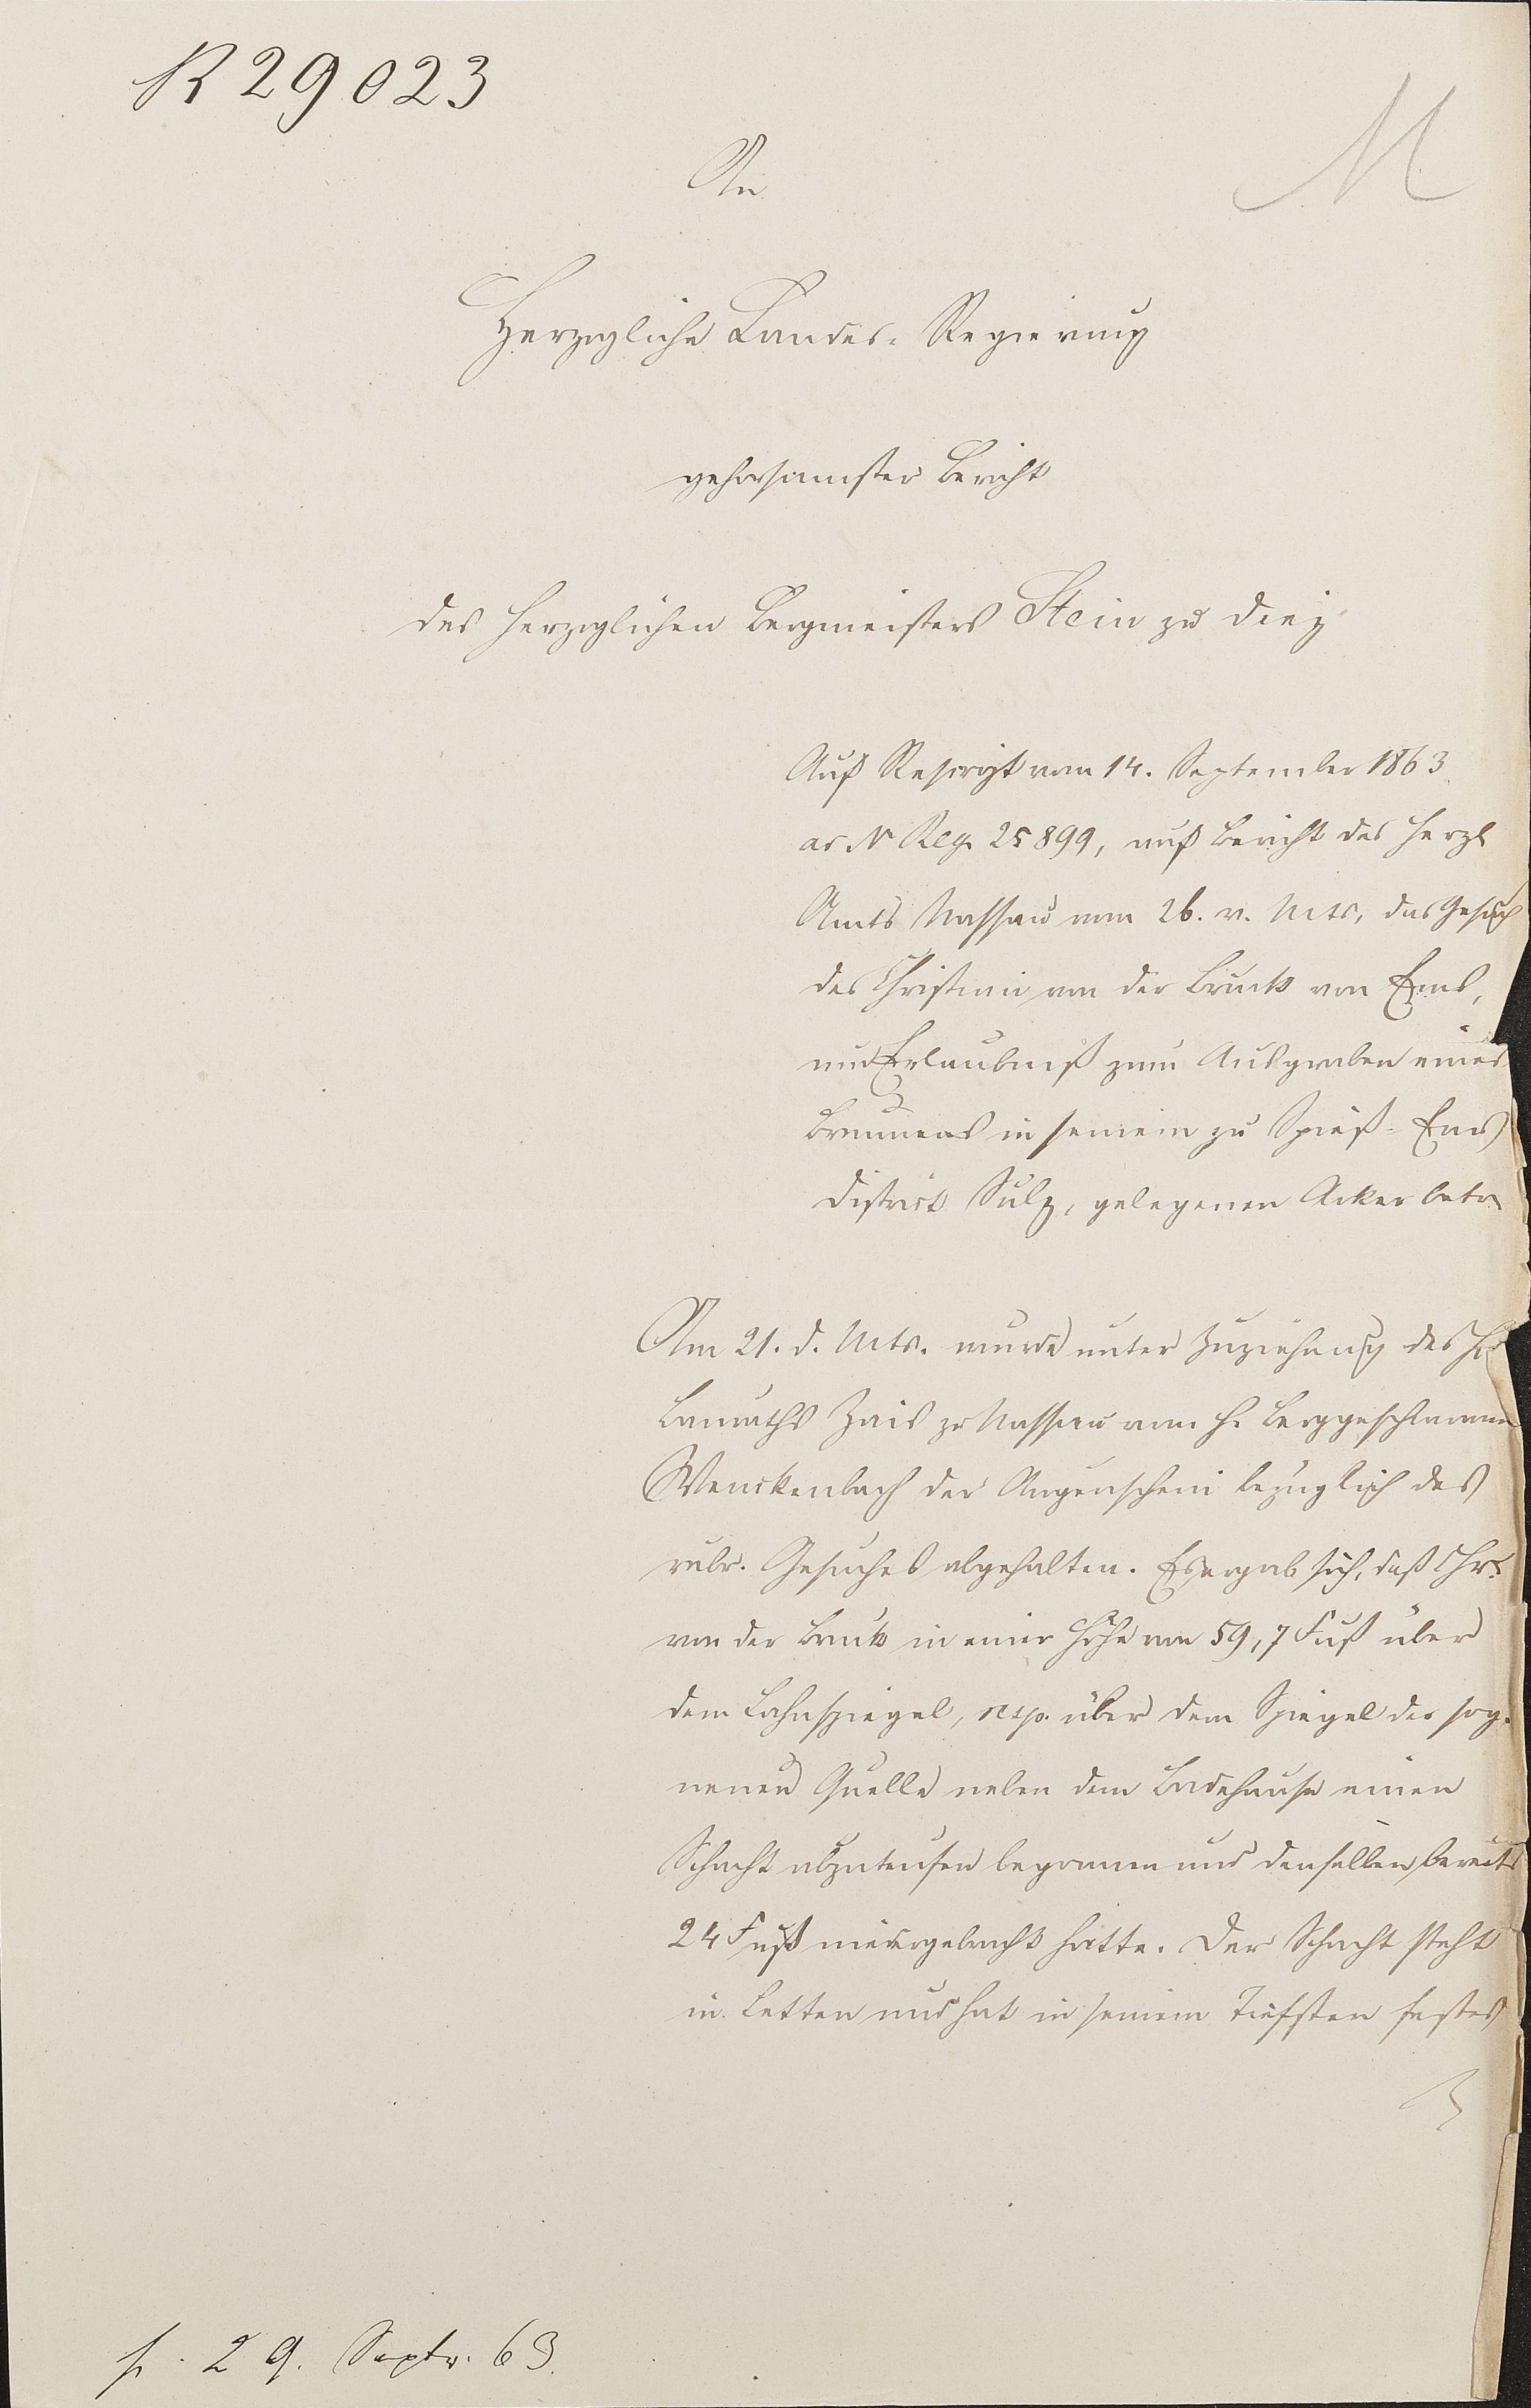 R 29023
M
An
Herzogliche Landes-Regierung
gehorsamster Bericht
des Herzoglichen Bergmeisters Stein zu Diez
Auf Rescript vom 14. September 1863
ad N Reg. 25899, auf Bericht des Herzl
Amts Nassau vom 26. v. Mts, das Gesuch
des Christian von der Bruck von Ems,
um Erlaubniß zum Ausgraben eines
Brunnens in seinem zu Spieß-Ems
District Sulz, gelegenen Acker betr.
Am 21. d. Mts. wurde unter Zuziehung des H.
Bauraths Zais zu Nassau vom H. Berggeschworenen
Wenckenbach der Augenschein bezüglich des
rubr. Gesuches abgehalten. Es ergab sich, daß Chr.
von der Bruck in einer Höhe von 59,7 Fuß über
dem Lahnspiegel, resp. über dem Spiegel der sog.
neuen Quelle neben dem Badehause einen
Schacht abzuteufen begonnen und denselben bereits
24 Fuß niedergebracht hatte. Der Schacht steht
in Letten und hat in seinem Tiefsten festes
p. 29. Septr. 63.